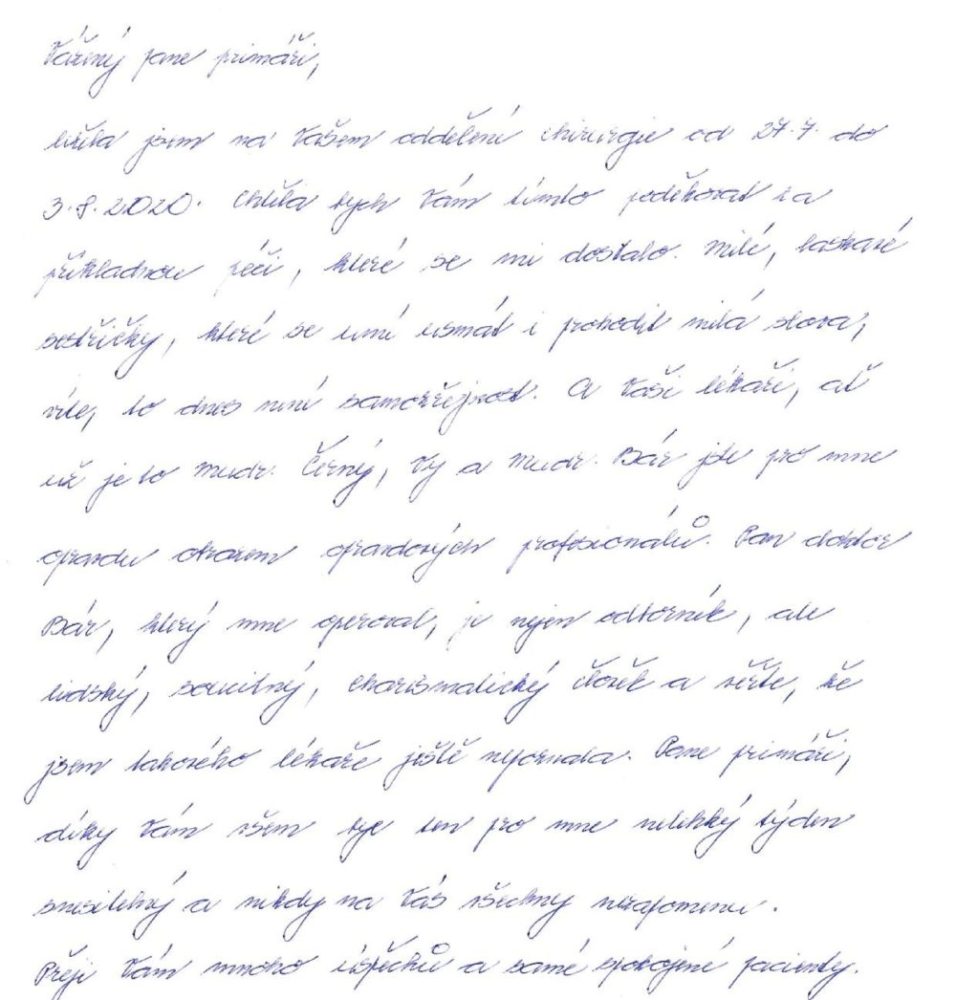 Vážený pane primáři,
ležela jsem na Vašem oddělení chirurgie od 27.7. do
3.8.2020. Chtěla bych Vám tímto poděkovat za
příkladnou péči, které se mi dostalo. Milé, laskavé
sestřičky, které se umí usmát i prohodit milá slova,
víte, to dnes není samozřejmost. A Vaši lékaři, ať
už je to Mudr. Černý, Vy a Mudr. Bár jste pro mne
opravdu obrazem opravdových profesionálů. Pan doktor
Bár, který mne operoval, je nejen odborník, ale
lidský, soucitný, charismatický člověk a věřte, že
jsem takového lékaře ještě nepoznala. Pane primáři,
díky Vám všem byl ten pro mne nelehký týden
snesitelný a nikdy na Vás všechny nezapomenu.
Přeji Vám mnoho úspěchů a samé spokojené pacienty.